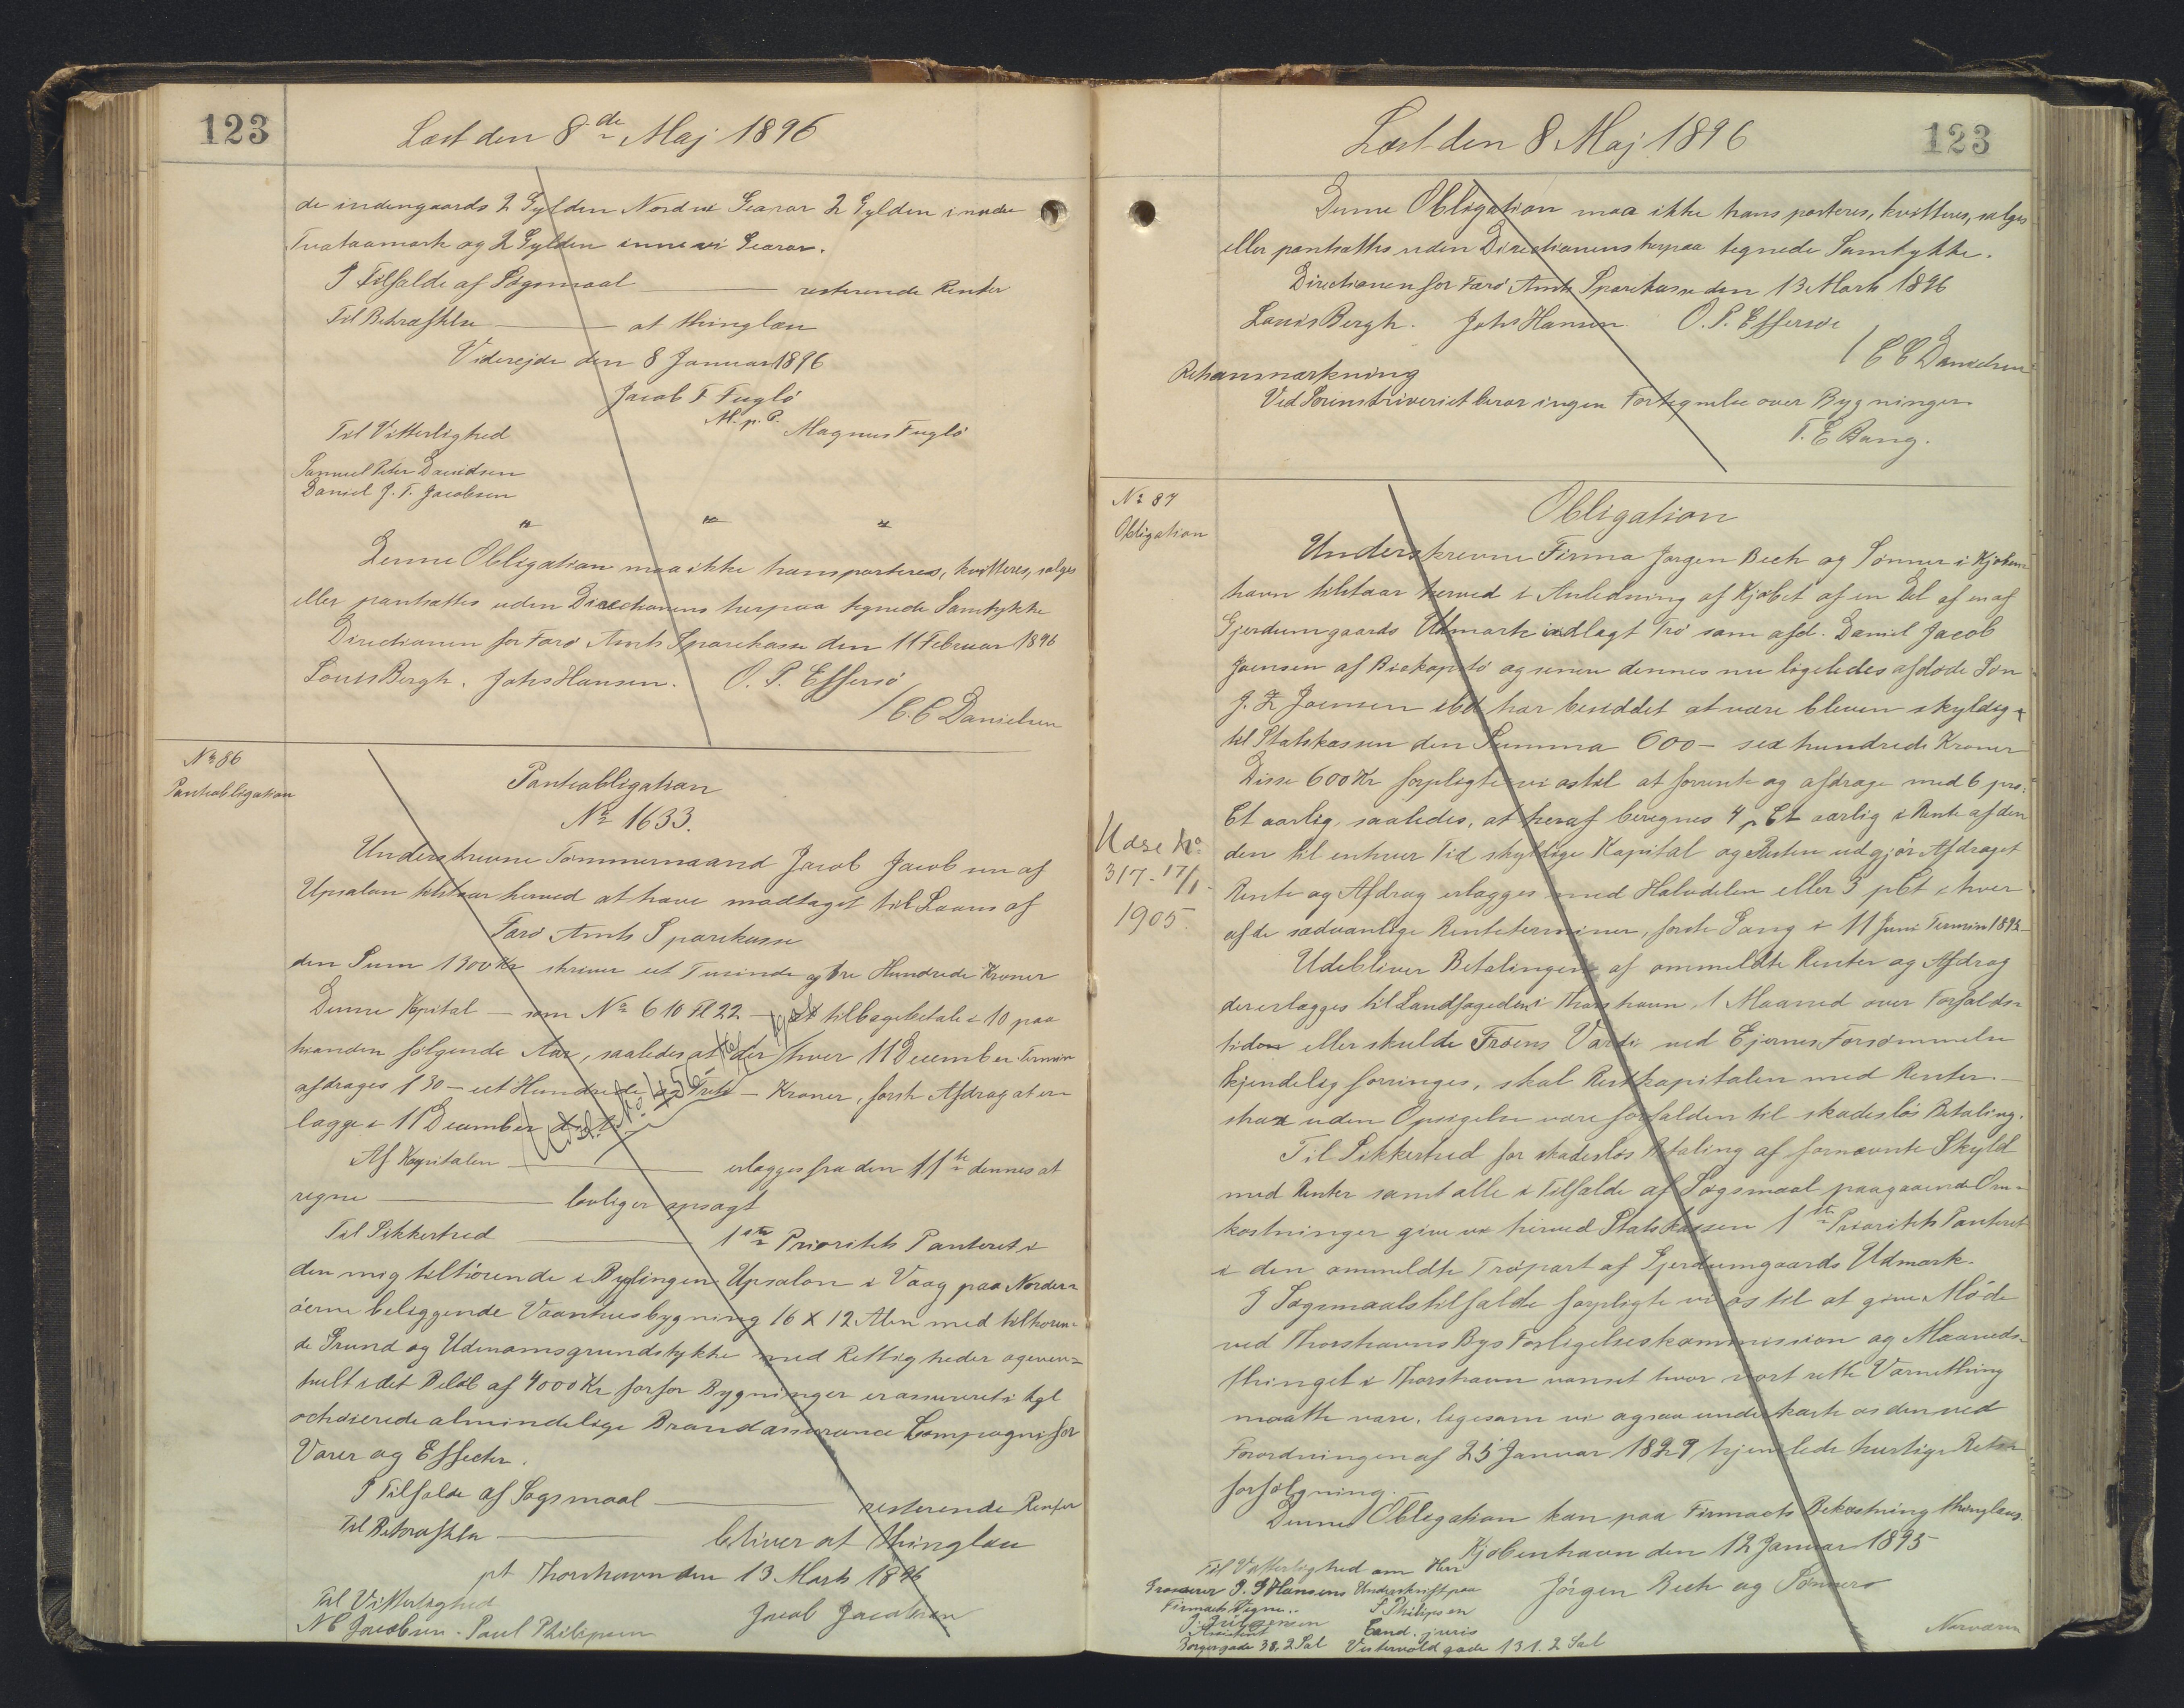 123
Læst den 8de Maj 1896
de indengaards 2 Gylden Nord ui Gearar 2 Gylden i nedre
Tvataamark og 2 Gylden inne vi Gearar.
I Tilfælde af Søgsmaal — resterende Renter
Til Bekræftelse — at thinglæse
Viderejde den 8 Januar 1896
Jacob F Fuglö
M. p. P.
Magnus Fuglö
Til Vitterlighed
Samuel Peter Davidsen
Daniel J. T. Jacobsen
" " "
Denne Obligation maa ikke transporteres, kvitteres, sælges
eller pantsættes uden Directionens herpaa tegnede Samtykke
Directionen for Færö Amts Sparekasse den 11 Februar 1896
Louis Bergh. Johs Hansen. O. P. Effersö
/ C. C Danielsen
No 86
Panteobligation
Panteobligation
No 1633.
Underskrevne Tömmermand Jacob Jacobsen af
Upsalon tilstaar herved at have modtaget til Laans af
Færö Amts Sparekasse
den Sum 1300 Kr skriver et Tusinde og tre Hundrede Kroner
Denne Kapital — som No 610 Fl 22 — at tilbagebetale i 10 paa
hinanden fölgende Aar, saaledes at der hver 11 December Termin
afdrages 130 — et Hundrede og Treti — Kroner, förste Afdrag at er-
lægge i 11 December
Af Kapitalen — erlægges fra den 11te dennes at
regne — lovligen opsagt
Til Sikkerhed — 1ste Prioritets Panteret i
den mig tilhörende i Bygdingen Upsalon i Vaag paa Norder-
öerne beliggende Vaanhusbygning 16 x 12 Alen med tilhören-
de Grund og Udenomsgrundstykke med Rettigheder og even-
tuelt i det Belöb af 4000 Kr hvorfor Bygninger er assureret i kgl
octroierede almindelige Brandassurance Compagni for
Varer og Effecter.
I Tilfælde af Søgsmaal — resterende Renter
Til Bekræftelse — bliver at thinglæse
pt Thorshavn den 13 Marts 1896
Til Vitterlighed
Jacob Jacobsen
N C Jacobsen. Paul Philipsen
Læst den 8 Maj 1896
123
Denne Obligation maa ikke transporteres, kvitteres, sælges
eller pantsættes uden Directionens herpaa tegnede Samtykke.
Directionen for Færö Amts Sparekasse den 13 Marts 1896
Louis Bergh. Johs Hansen O. P. Effersöe
/ C C Danielsen
Retsanmærkning
Ved Sorenskriveriet beror ingen Fortegnelse over Bygningen
T. E Bang.
No 87
Obligation
Obligation
Underskrevne Firma Jørgen Bech og Sønner i Kjøben-
havn tilstaar herved i Anledning af Kjøbet af en Del af en af
Gjerdumgaards Udmark indlagt Trö som afd. Daniel Jacob
Joensen af Biskopstö og senere dennes nu ligeledes afdöde Sön
J. F Joensen ibd har besiddet at være bleven skyldig
til Statskassen den Summa 600 — sex hundrede Kroner
Disse 600 Kr forpligte vi os til at forrente og afdrage med 6 pro-
Ct aarlig, saaledes, at heraf beregnes 4 pCt aarlig i Rente af den
den til enhver Tid skyldige Kapital og Resten udgjör Afdraget
Rente og Afdrag erlægges med Halvdelen eller 3 pCt i hver
af de sædvanlige Renteterminer, förste Gang i 11 Juni Termin 1895
Udslettet No
317 - 17/1 -
1905.
Udebliver Betalingen af ommeldte Renter og Afdrag
der erlægges til Landfogeden i Thorshavn 1 Maaned over Forfalds-
tiden eller skulde Tröens Værdi ved Ejernes Forsømmelse
kjendelig forringes, skal Restkapitalen med Renter
strax uden Opsigelse være forfalden til skadeslös Betaling.
Til Sikkerhed for skadeslös Betaling af fornævnte Skyld
med Renter samt alle i Tilfælde af Søgsmaal paagaaende Om-
kostninger give vi herved Statskassen 1ste Prioritets Panteret
i den ommeldte Tröpart af Gjerdumgaards Udmark.
I Søgsmaalstilfælde forpligte vi os til at give Möde
ved Thorshavns Bys Forligelseskommission og Maaneds-
thinget i Thorshavn uanset hvor vort rette Værnething
maatte være, ligesom vi ogsaa underkaste os den ved
Forordningen af 25 Januar 1829 hjemlede hurtige Rets-
forfölgning.
Denne Obligation kan paa Firmaets Bekostning thinglæses.
Kjøbenhavn den 12 Januar 1895
Jörgen Bech og Sønner
Til Vitterlighed om Herr
Grosserer P. J Hansens Underskrift paa
Firmaets Vegne.
S Philipsen
Assistent
Cand. juris
Borgergade 38, 2 Sal Vestervoldgade 131. 2 Sal
Nærværen